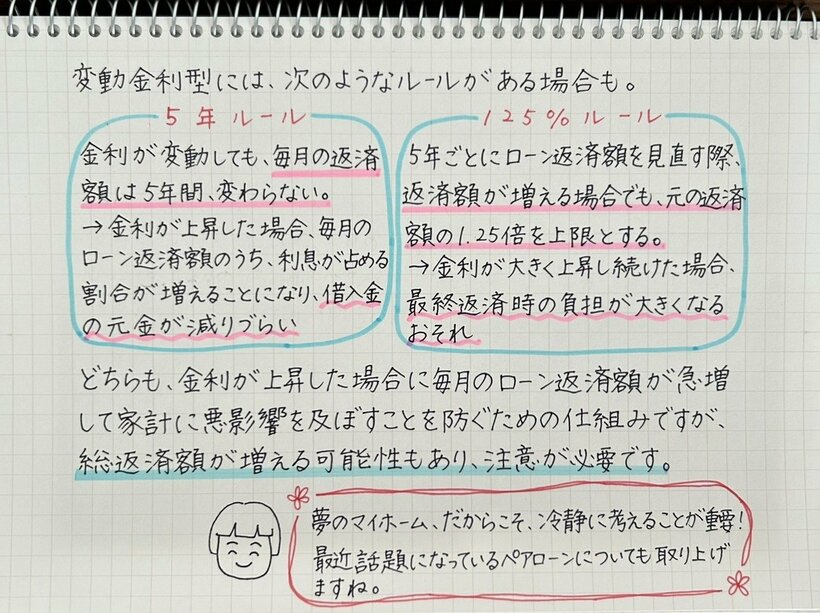 変動金利型には、次のようなルールがある場合も。
5年ルール
金利が変動しても、毎月の返済
額は5年間、変わらない。
→金利が上昇した場合、毎月の
ローン返済額のうち、利息が占める
割合が増えることになり、借入金
の元金が減りづらい
125%ルール
5年ごとにローン返済額を見直す際、
返済額が増える場合でも、元の返済
額の1.25倍を上限とする。
→金利が大きく上昇し続けた場合、
最終返済時の負担が大きくなる
おそれ
どちらも、金利が上昇した場合に毎月のローン返済額が急増
して家計に悪影響を及ぼすことを防ぐための仕組みですが、
総返済額が増える可能性もあり、注意が必要です。
夢のマイホーム、だからこそ、冷静に考えることが重要!
最近話題になっているペアローンについても取り上げ
ますね。